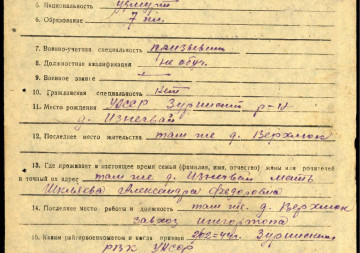 5. Национальность удмурт
6. Образование 7 кл.
7. Военно-учетная специальность призывник
8. Должностная квалификация не обуч.
9. Военное звание —
10. Гражданская специальность нет
11. Место рождения УАССР Зуринский р-н
д.
12. Последнее место жительства там же д.
13. Где проживает в настоящее время семья (фамилия, имя, отчество) жены или родителей
и точный их адрес там же д. мать
Шкляева Александра Федоровна
14. Последнее место работы и должность там же, д.
завхоз
15. Каким райгорвоенкоматом и когда призван Зуринским
РВК УАССР